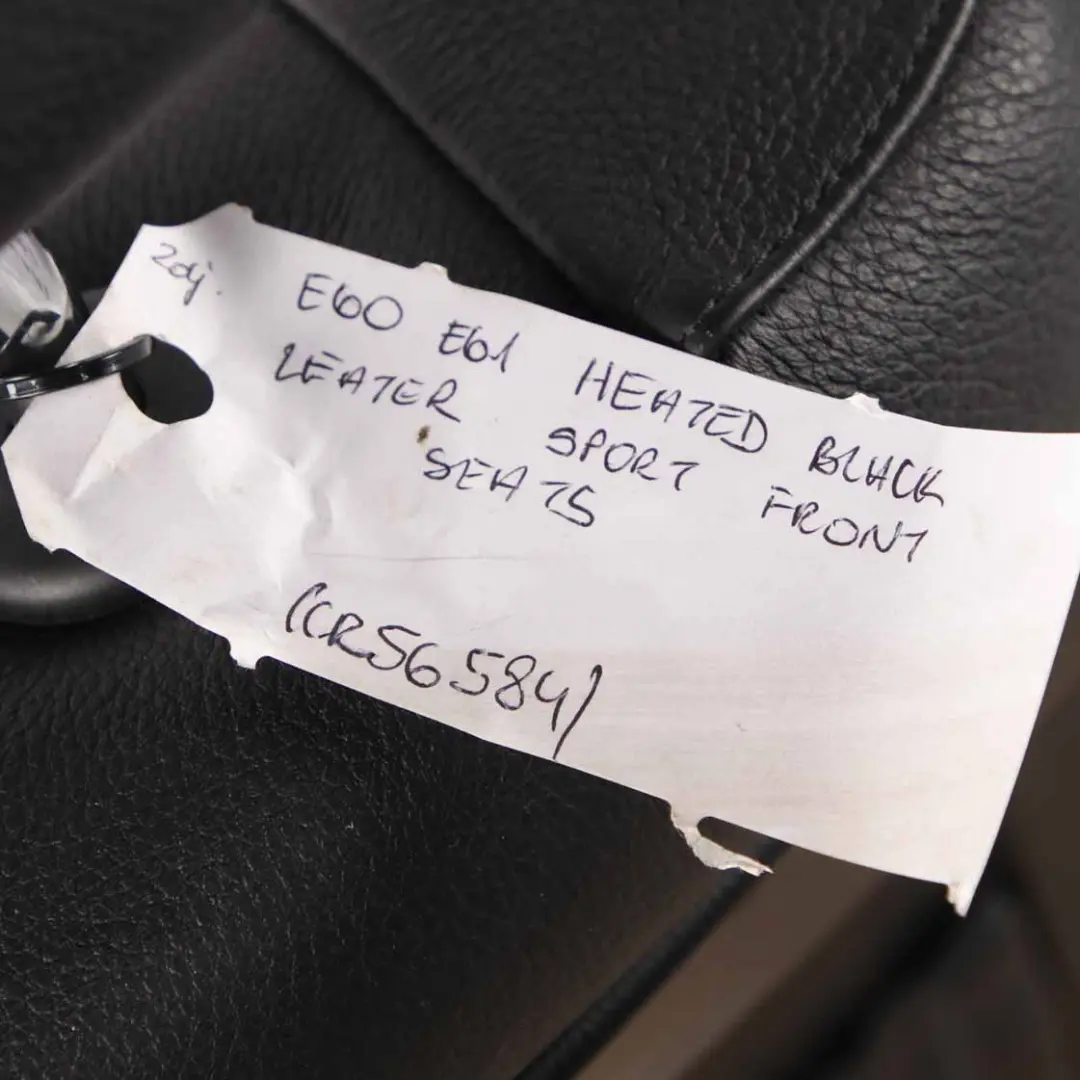 2dj.
E60 E61 HEATED BLACK
LEATER SPORT FRONT
SEATS
(CR56584)